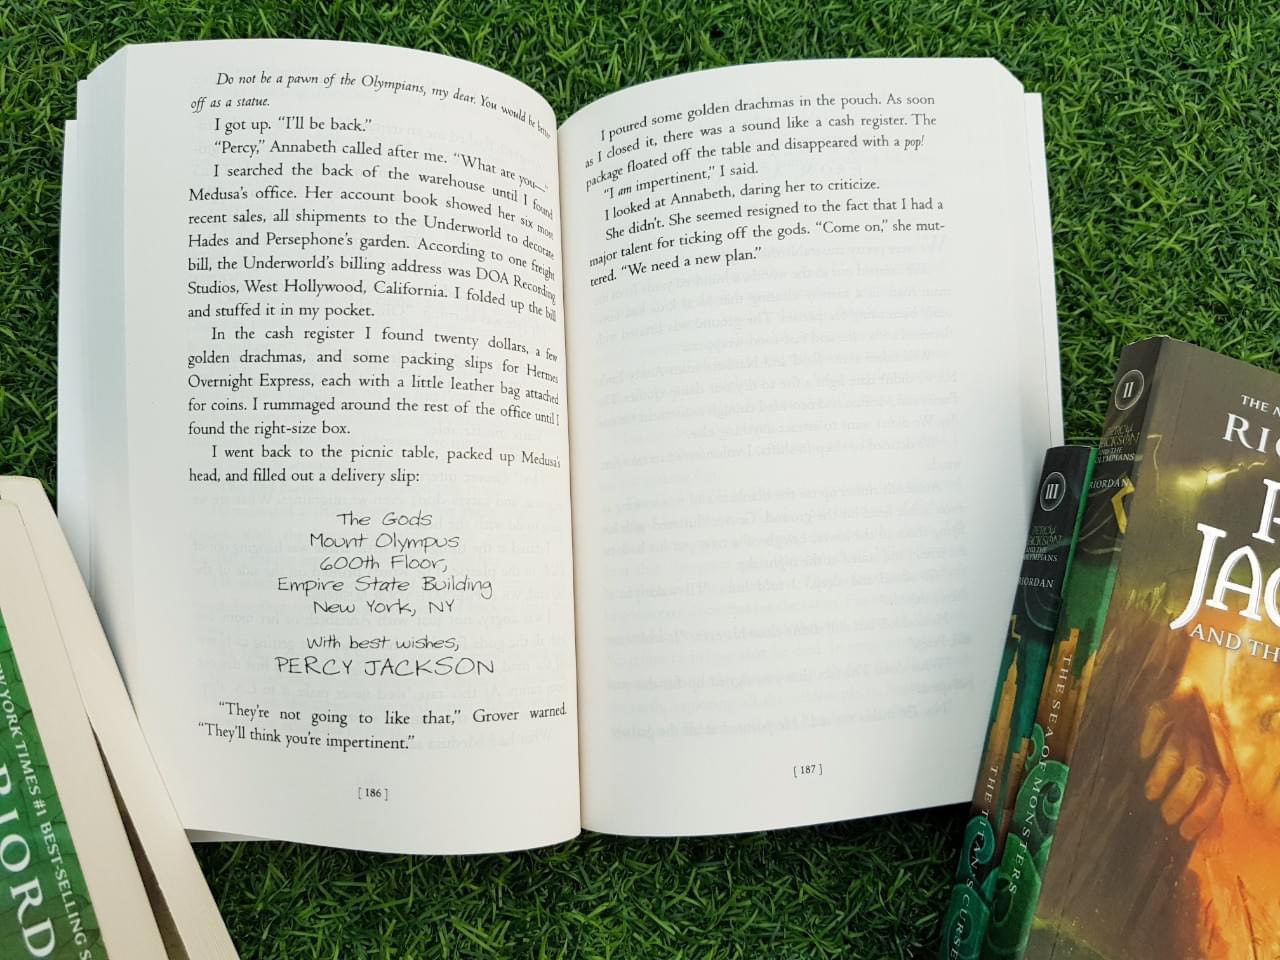 Do not be a pawn of the Olympians, my dear. You would be better
off as a statue.
I got up. “I’ll be back.”
“Percy,” Annabeth called after me. “What are you—”
I searched the back of the warehouse until I found
Medusa’s office. Her account book showed her six most
recent sales, all shipments to the Underworld to decorate
Hades and Persephone’s garden. According to one freight
bill, the Underworld’s billing address was DOA Recording
Studios, West Hollywood, California. I folded up the bill
and stuffed it in my pocket.
In the cash register I found twenty dollars, a few
golden drachmas, and some packing slips for Hermes
Overnight Express, each with a little leather bag attached
for coins. I rummaged around the rest of the office until I
found the right-size box.
I went back to the picnic table, packed up Medusa’s
head, and filled out a delivery slip:
The Gods
Mount Olympus
600th Floor,
Empire State Building
New York, NY
With best wishes,
PERCY JACKSON
“They’re not going to like that,” Grover warned.
“They’ll think you’re impertinent.”
[ 186 ]
I poured some golden drachmas in the pouch. As soon
as I closed it, there was a sound like a cash register. The
package floated off the table and disappeared with a pop!
“I am impertinent,” I said.
I looked at Annabeth, daring her to criticize.
She didn’t. She seemed resigned to the fact that I had a
major talent for ticking off the gods. “Come on,” she mut-
tered. “We need a new plan.”
[ 187 ]
YORK TIMES #1 BEST-SELLING
RIORD
III
PERCY
JACKSON
AND THE
OLYMPIANS
RIORDAN
THE TITAN'S CURSE
II
PERCY
JACKSON
AND THE
OLYMPIANS
RIORDAN
THE SEA OF MONSTERS
THE
RI
JAC
AND TH